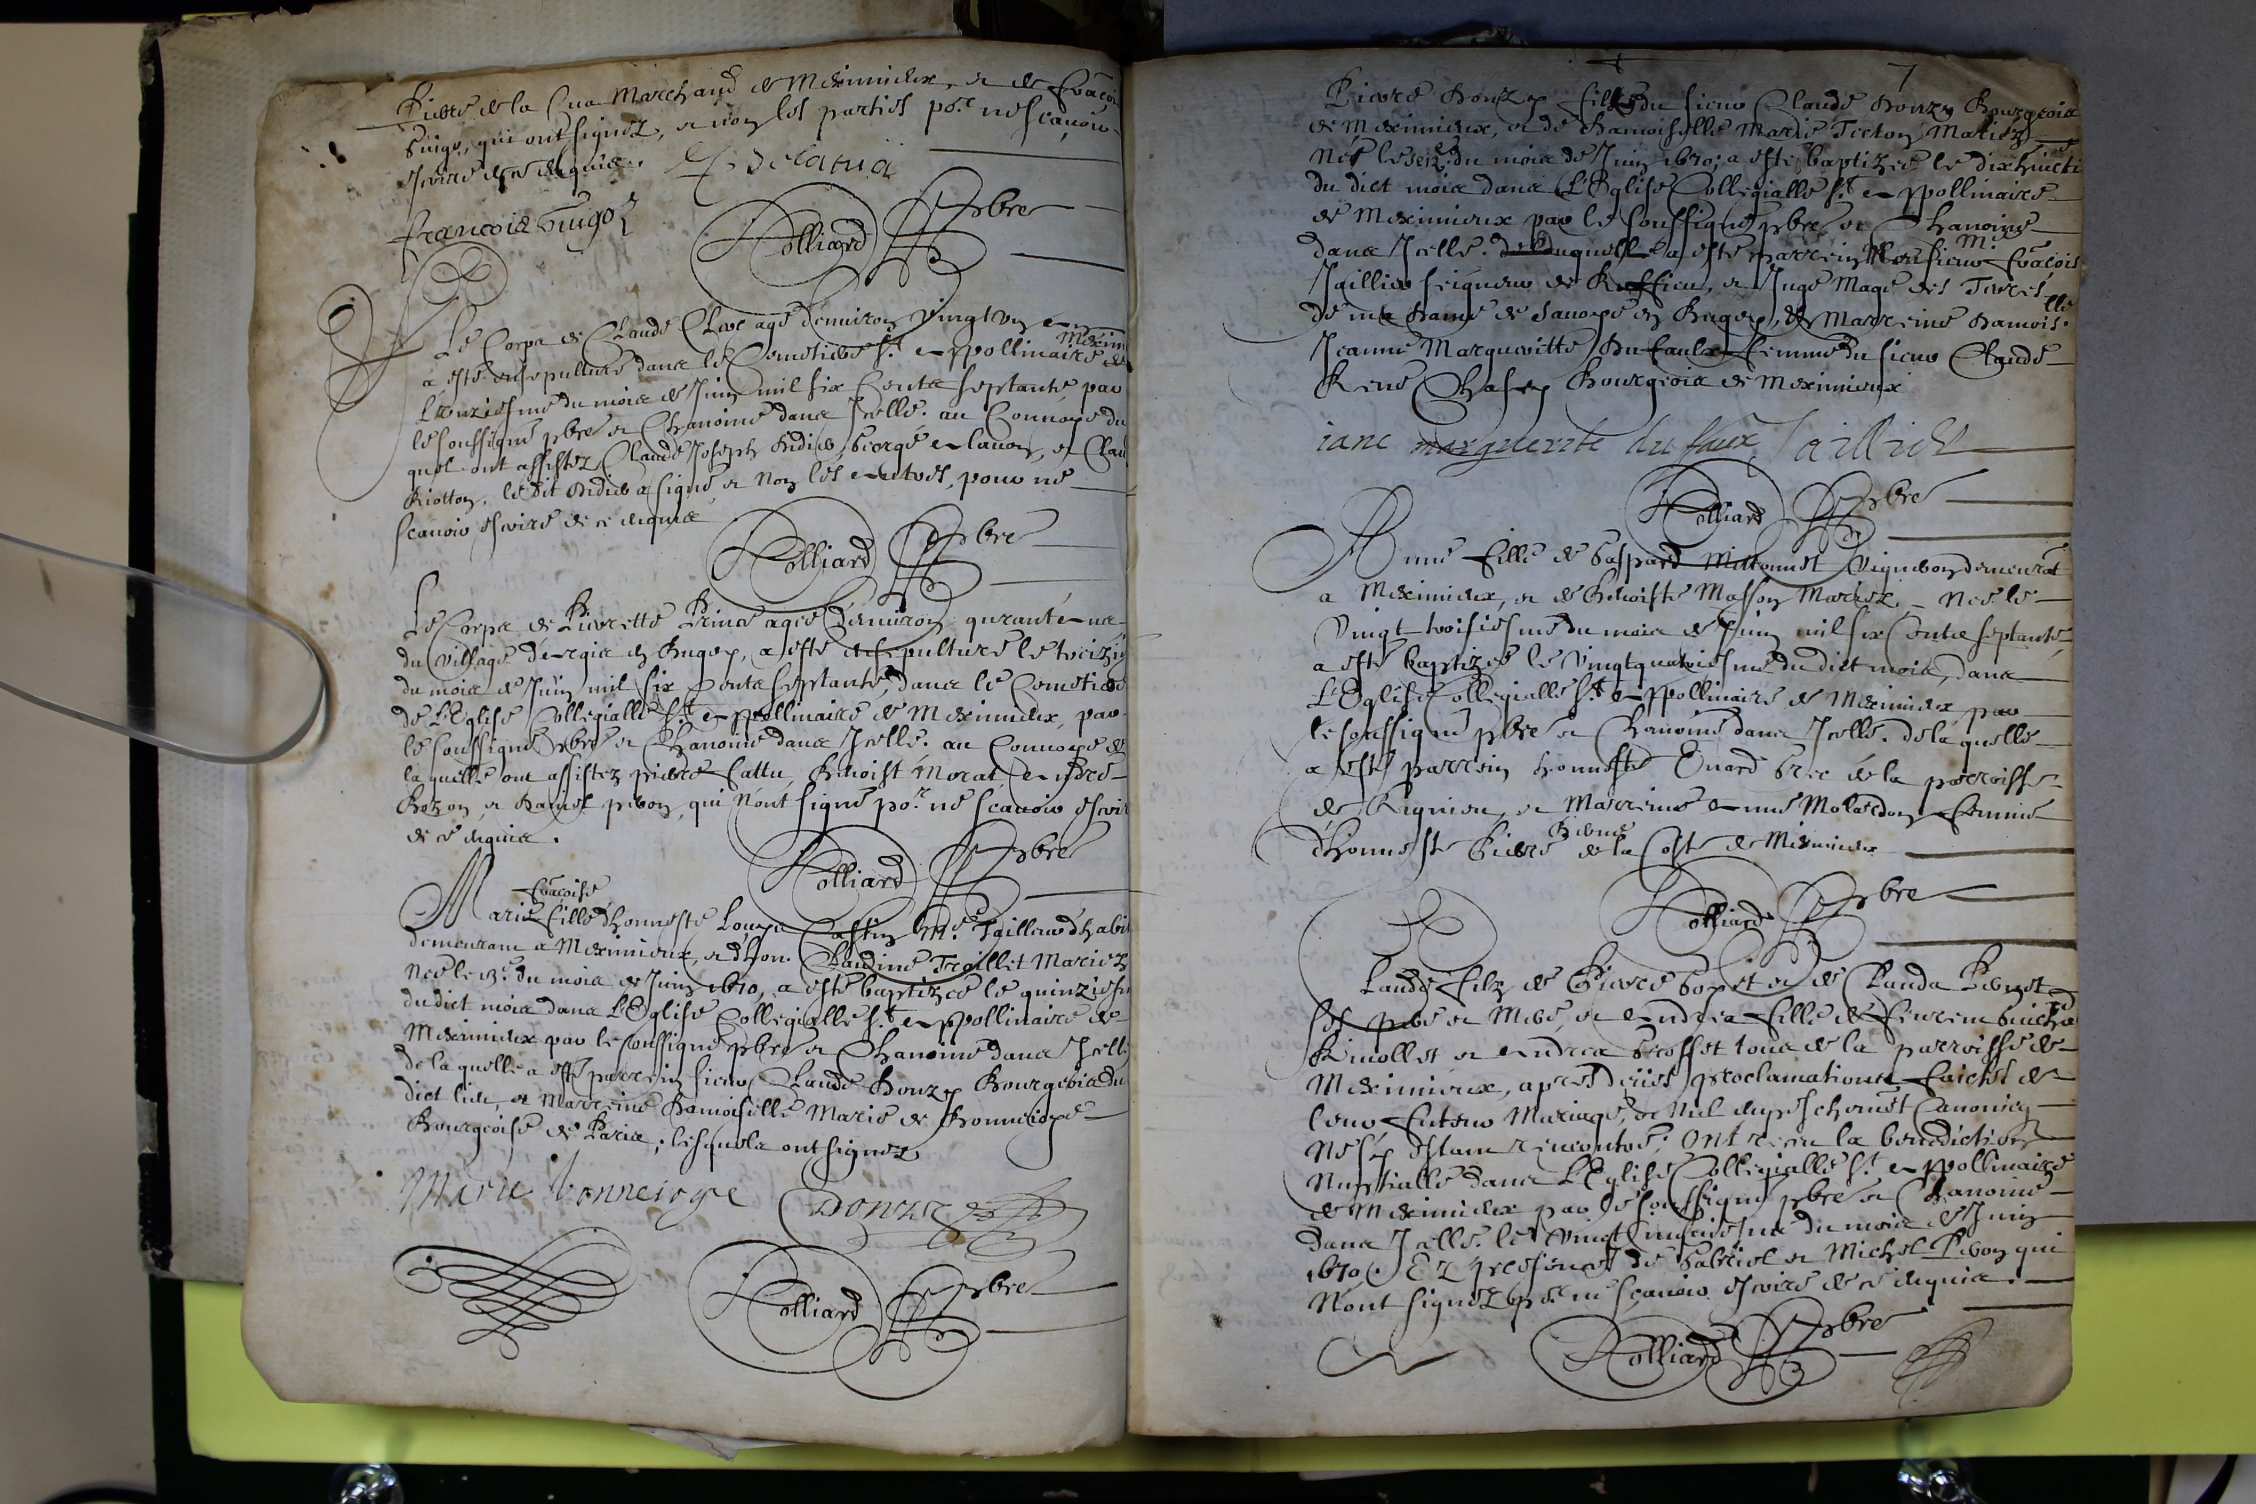 Pierre de la Cua Marchand de Meximieux, et de Francois
Hugo, qui ont signez, et non les parties por ne scavoir
escrire de ce requis. Delacua
francois hugoz
Rolliard pbre
Le Corps de Claude Clerc agé denuiron vingt un
a esté ensepulturé dans le Cemetiere St Appollinaire de Meximi
L'onziesme du mois de Juin mil six Cents septante par
le soussigné pbre et Chanoine dans Icelle. au Connoye du
quel ont assistez Claude Joseph Didier, George Lauon, et Clau
Riotton. le dit Didier a signé et Non les Autres, pour ne
scauoir escrire de ce requis
Rolliard pbre
Le Corps de Pierrette Prince agée d'enuiron quarante
du village en Bugey, a esté ensepulturé le treizie
du mois de Juin mil six cents septante, dans le Cemetiere
de L'Eglise Collegialle St Appollinaire de Meximieux, par
le soussigné pbre et Chanoine dans Icelle. au Connoye de
laquelle ont assistez pierre Cattu, Benoist Morat, Andre
Bozon, et Daniel piron, qui N'ont signé por ne scauoir escrir
de ce requis.
Rolliard pbre
Marie Francoise fille d'honneste Louys Castin Me Tailleur d'habit
demeurant a Meximieux, et d'hon. Claudine Troillet Mariez
Née le 13e du mois de Juin 1670, a esté baptizée le quinziesm
du dict mois dans L'Eglise Collegialle St Appollinaire de
Meximieux par le soussigné pbre et Chanoine dans Icelle
de laquelle a esté parrein sieur Claude Donzy Bourgeois du
dict lieu, et Marreine Damoiselle Marie de Bonneioye
Bourgeoise de Paris; lesquels ont signez
Marie bonneioye Donzy
Rolliard pbre
7
Pierre Donzy fils du sieur Claude Donzy Bourgeois
de Meximieux, et de Damoiselle Marie Treton Mariez
Né le seize du mois de Juin 1670; a esté baptizé le dixhuicti
du dict mois dans L'Eglise Collegialle St Appollinaire
de Meximieux par le soussigné pbre et Chanoine
dans Icelle. duquel a esté parrein Monsieur Mr Francois
Jaillier seigneur de Ruffieu, et Juge Mage des Terres
de ma Dame de Sauoye en Bugey, et Marreine Damoislle
Jeanne Marguerite Du Faulx femme du sieur Claude
René Chasey Bourgeois de Meximieux
iane marguerite du faux Jaillier
Rolliard pbre
Anne fille de Gaspard Mittonnet Vigneron demeurāt
a Meximieux, et de Benoiste Masson Mariez. Née le
vingt troisiesme du mois de Juin mil six Cents septante,
a esté baptizée le vingtquatriesme du dict mois, dans
L'Eglise Collegialle St Appollinaire de Meximieux par
le soussigné pbre et Chanoine dans Icelle. de laquelle
a esté parrein honneste Enard Grec de la parroisse
de Rignieu, et Marreine Anne Molardon femme
d'honneste Pierre de la Coste de Meximieux
Rolliard pbre
Claude filz de Pierre Goyet et de Clauda
ses pere et Mere, et Andrea fille de feu rene Guichard
Rinollet et Andrea Grosset tous de la parroisse de
Meximieux, apres deües proclamations faictes de
leur futeur Mariage, et Nul empeschemēt Canonicq
ne s'y estant rencontré; Ont receu la benediction
Nuptialle dans L'Eglise Collegialle St Appollinaire
de Meximieux par le soussigné pbre et Chanoine
dans Icelle. le vingt cinquiesme du mois de Juin
1670. Ez presences de Gabriel et Michel Piron qui
N'ont signez por ne scauoir escrire de ce requis.
Rolliard pbre